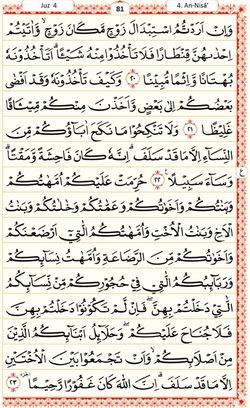 Juz 4 81 4. An-Nisā'
وَاِنْ اَرَدْتُّمُ اسْتِبْدَالَ زَوْجٍ مَّكَانَ زَوْجٍۙ وَّاٰتَيْتُمْ
اِحْدٰىهُنَّ قِنْطَارًا فَلَا تَأْخُذُوْا مِنْهُ شَيْـًٔاۗ اَتَأْخُذُوْنَهٗ
بُهْتَانًا وَّاِثْمًا مُّبِيْنًا ﴿٢٠﴾ وَكَيْفَ تَأْخُذُوْنَهٗ وَقَدْ اَفْضٰى
بَعْضُكُمْ اِلٰى بَعْضٍ وَّاَخَذْنَ مِنْكُمْ مِّيْثَاقًا
غَلِيْظًا ﴿٢١﴾ وَلَا تَنْكِحُوْا مَا نَكَحَ اٰبَاۤؤُكُمْ مِّنَ
النِّسَاۤءِ اِلَّا مَا قَدْ سَلَفَۗ اِنَّهٗ كَانَ فَاحِشَةً وَّمَقْتًاۗ
وَسَاۤءَ سَبِيْلًا ﴿٢٢﴾ حُرِّمَتْ عَلَيْكُمْ اُمَّهٰتُكُمْ
وَبَنٰتُكُمْ وَاَخَوٰتُكُمْ وَعَمّٰتُكُمْ وَخٰلٰتُكُمْ وَبَنٰتُ
الْاَخِ وَبَنٰتُ الْاُخْتِ وَاُمَّهٰتُكُمُ الّٰتِيْٓ اَرْضَعْنَكُمْ
وَاَخَوٰتُكُمْ مِّنَ الرَّضَاعَةِ وَاُمَّهٰتُ نِسَاۤىِٕكُمْ
وَرَبَاۤىِٕبُكُمُ الّٰتِيْ فِيْ حُجُوْرِكُمْ مِّنْ نِّسَاۤىِٕكُمُ
الّٰتِيْ دَخَلْتُمْ بِهِنَّۖ فَاِنْ لَّمْ تَكُوْنُوْا دَخَلْتُمْ بِهِنَّ
فَلَا جُنَاحَ عَلَيْكُمْۖ وَحَلَاۤىِٕلُ اَبْنَاۤىِٕكُمُ الَّذِيْنَ
مِنْ اَصْلَابِكُمْۙ وَاَنْ تَجْمَعُوْا بَيْنَ الْاُخْتَيْنِ
اِلَّا مَا قَدْ سَلَفَۗ اِنَّ اللّٰهَ كَانَ غَفُوْرًا رَّحِيْمًا ﴿٢٣﴾